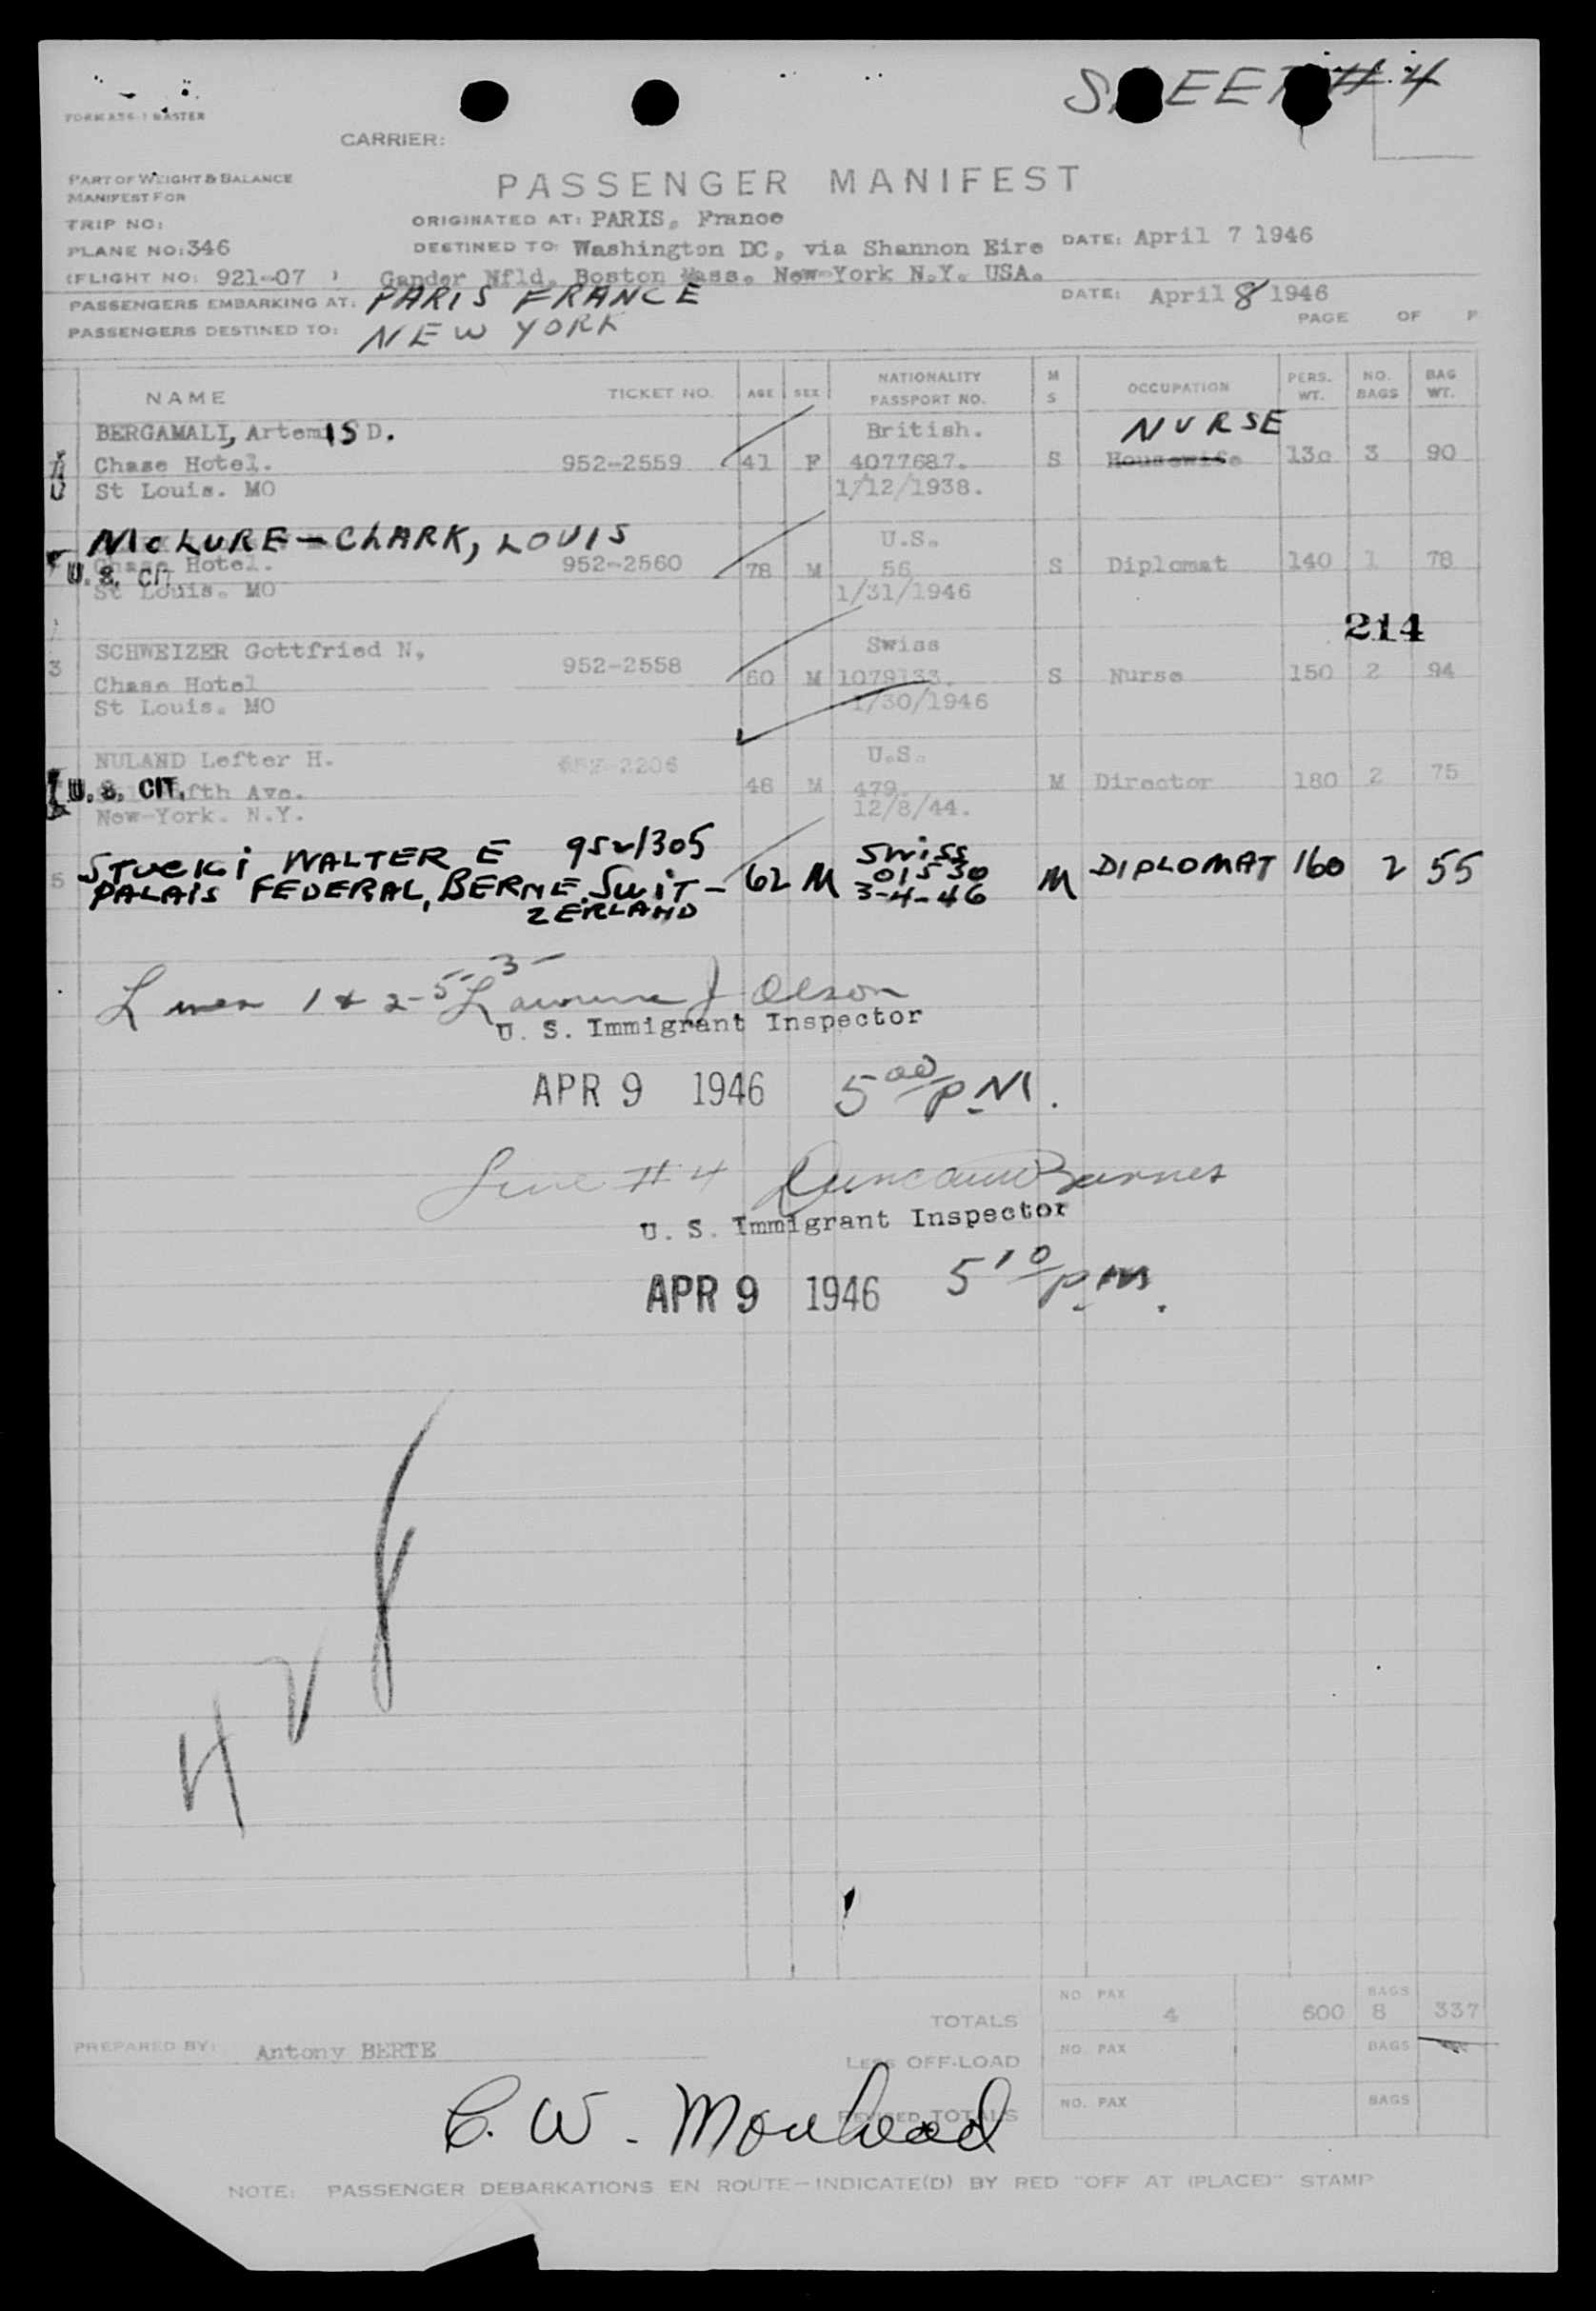 SHEET #4
FORM A36-1 MASTER
CARRIER:
PART OF WEIGHT & BALANCE
MANIFEST FOR
PASSENGER MANIFEST
TRIP NO:
ORIGINATED AT: PARIS, France
PLANE NO: 346
DESTINED TO: Washington DC, via Shannon Eire DATE: April 7 1946
(FLIGHT NO: 921-07 ) Gander Nfld. Boston Mass. New-York N.Y. USA.
PASSENGERS EMBARKING AT: PARIS FRANCE DATE: April 8 1946
PASSENGERS DESTINED TO: NEW YORK PAGE OF P
NAME TICKET NO. AGE SEX NATIONALITY PASSPORT NO. M S OCCUPATION PERS. WT. NO. BAGS BAG WT.
BERGAMALI, Artemis D. British. NURSE
Chase Hotel. 952-2559 41 F 4077687. S Housewife 130 3 90
St Louis. MO 1/12/1938.
McLURE-CLARK, LOUIS U.S.
Chase Hotel. 952-2560 78 M 56 S Diplomat 140 1 78
U. S. CIT.
St Louis. MO 1/31/1946
214
SCHWEIZER Gottfried N. Swiss
3 Chase Hotel 952-2558 60 M 1079133. S Nurse 150 2 94
St Louis. MO 1/30/1946
NULAND Lefter H. 2206 U.S.
U. S. CIT. Fifth Ave. 46 M 479. M Director 180 2 75
New-York. N.Y. 12/8/44.
5 STUCKI WALTER E 952/305 62 M SWISS 01530 M DIPLOMAT 160 2 55
PALAIS FEDERAL, BERNE SWIT- 3-4-46
ZERLAND
3-
Lines 1 & 2-5 Lawrence J Olson
U. S. Immigrant Inspector
APR 9 1946 5 00/PM.
Line #4 Duncan Barnes
U. S. Immigrant Inspector
APR 9 1946 5 10/pm.
TOTALS NO. PAX 4 600 BAGS 8 337
PREPARED BY: Antony BERTE
LESS OFF-LOAD NO. PAX BAGS
REVISED TOTALS NO. PAX BAGS
C. W. Morhead
NOTE: PASSENGER DEBARKATIONS EN ROUTE—INDICATE(D) BY RED "OFF AT (PLACE)" STAMP